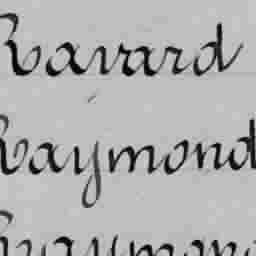 Ravard
Raymond